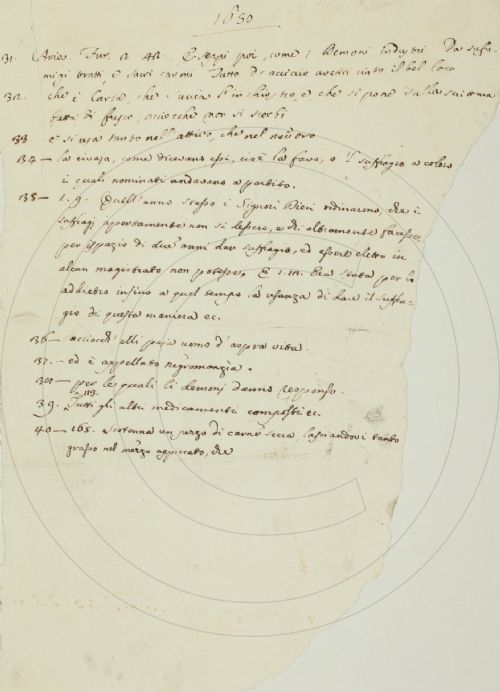 1650
31. Arios. Fur. 2. 42. E scrpi poi, come i Demoni industri Da suffu-
migi tratti e sacri carmi Tutto d'acciaio avean cinto il bel loco
32. che è Carta, che suzia l'inchiostro, e che si pone sulla scrittura
fatta di fresco, acciochè non si scorbi
33 e si usa tanto nell'attivo, che nel neutro
134 — la civaja, come dicevano essi, cioè la fava, o il suffragio a coloro
i quali nominati andavano a partito.
135 — 1. 9. Quell'anno stesso i Signori Dieci ordinarono, che i
suffragj apertamente non si dessero, e chi altramente facesse,
per ispazio di due anni dar suffragio, ed essere eletto in
alcun magistrato, non potesse. E i. m. Era stata per lo
addietro insino a quel tempo la usanza di dare il suffra-
gio di questa maniera ec.
136 — acciocch' elli paja uomo d'aspra vita.
137. — ed è appellato negromanzia.
138 — per le quali li demonj danno responso.
39. 113. Tutti gli altri medicamenti composti ec.
40 — 165. Scotenna un pezzo di carne secca lasciandovi tanto
grasso nel mezzo appiccato, che